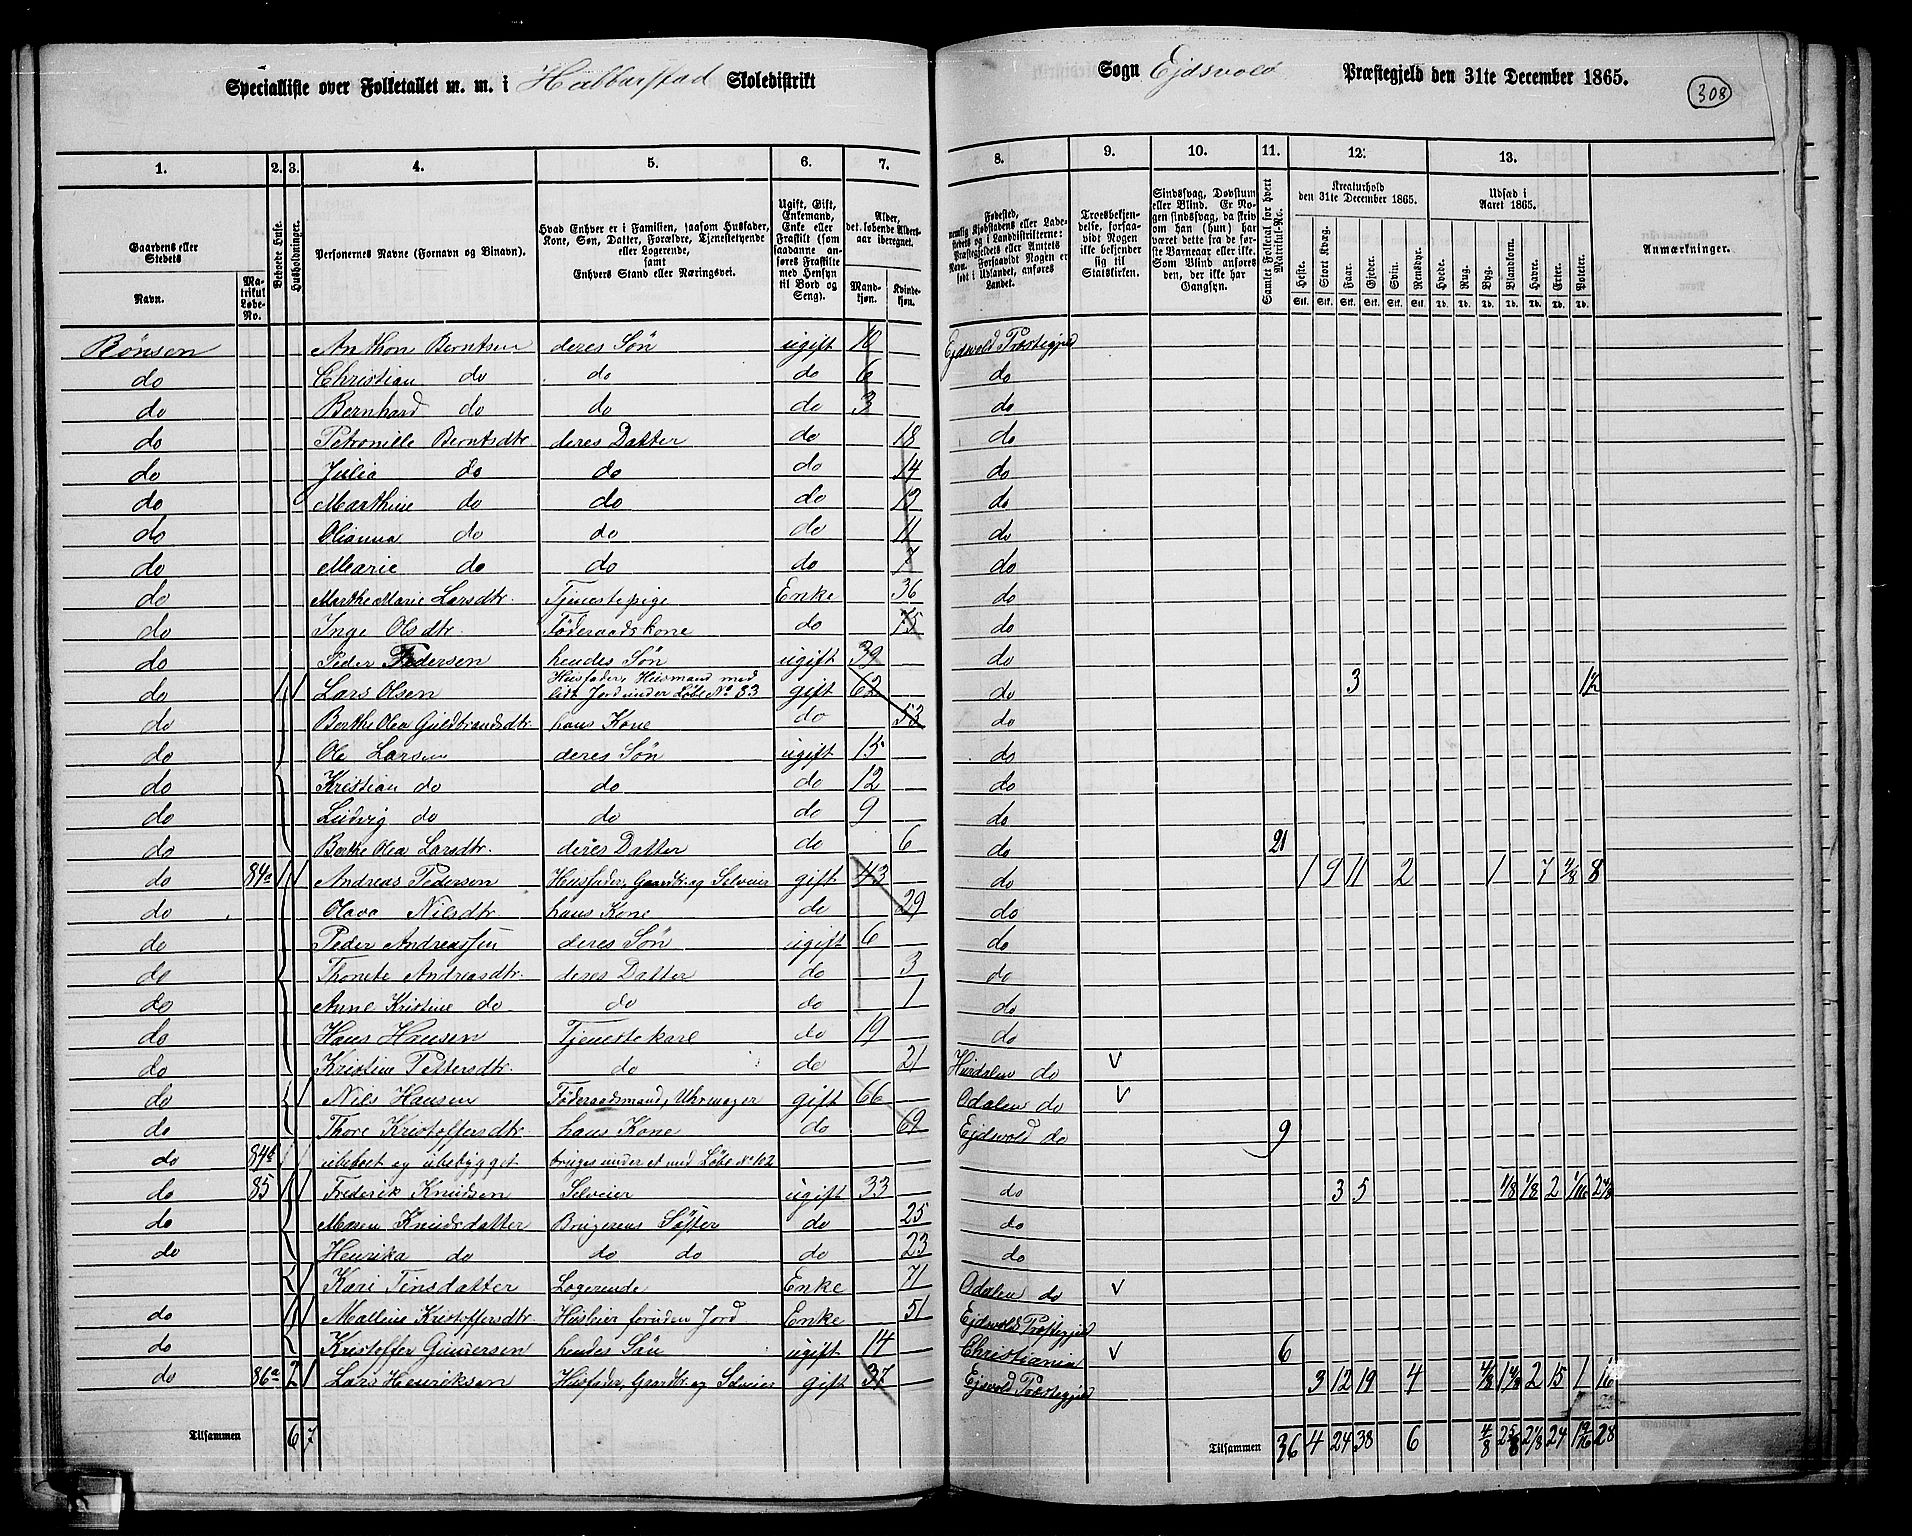 308
Specialliste over Folketallet m. m. i Habberstad Skoledistrikt Sogn Ejdsvold Præstegjeld den 31te December 1865.
1. 2. 3. 4. 5. 6. 7. 8. 9. 10. 11. 12. 13.
Gaardens eller Stedets Navn. Matrikul Løbe-No.
Beboede Huse.
Husholdninger.
Personernes Navne (Fornavn og Binavn).
Hvad Enhver er i Familien, saasom Husfader, Kone, Søn, Datter, Forældre, Tjenestetyende eller Logerende, samt Enhvers Stand eller Næringsvei.
Ugift, Gift, Enkemand, Enke eller Fraskilt (som saadanne anføres Fraskilte med Hensyn til Bord og Seng).
Alder, det løbende Aldersaar iberegnet. Mandkjøn. Kvindekjøn.
Fødested, nemlig Kjøbstadens eller Ladestedets og i Landdistrikterne: Præstegjeldets eller Amtets Navn. Forsaavidt Nogen er født i Udlandet, anføres Landet.
Troesbekjendelse, forsaavidt Nogen ikke bekjender sig til Statskirken.
Sindssvag, Døvstum eller Blind. Er Nogen sindssvag, da skriv om han (hun) har været dette fra de første Barneaar eller ikke. Som Blind anføres den, der ikke har Gangsyn.
Samlet Folketal for hvert Matrikul-No.
Kreaturhold den 31te December 1865. Heste. Stort Kvæg. Faar. Gjeder. Svin. Rensdyr.
Udsæd i Aaret 1865. Hvede. Rug. Byg. Blandkorn. Havre. Erter. Poteter.
Anmærkninger.
Bönsen Anthon Berntsen deres Søn ugift 10 Ejdsvold Præstegjeld
do Christian do do do 6 do
do Bernhard do do do 3 do
do Petronille Berntsdtr. deres Datter do 18 do
do Julia do do do 14 do
do Marthine do do do 12 do
do Olianna do do do 11 do
do Marie do do do 7 do
do Marthe Marie Larsdtr. Tjenestepige Enke 36 do
do Inge Olsdtr. Föderaadskone do 75 do
do Peder Pedersen hendes Søn ugift 39 do
do 1 1 Lars Olsen Husfader, Husmand med lidt Jord under Løbe No 83 gift 62 do 3 12
do Berthe Olea Guldbrandsdtr. hans Kone do 53 do
do Ole Larsen deres Søn ugift 15 do
do Kristian do do do 12 do
do Ludvig do do do 9 do
do Berthe Olea Larsdtr. deres Datter do 6 do 21
do 84a 1 1 Andreas Pedersen Husfader, Gaardbr. og Selveier gift 43 do 1 9 11 2 1 7 4/8 8
do Olava Nilsdtr. hans Kone do 29 do
do Peder Andreassen deres Søn ugift 6 do
do Thonete Andreasdtr. deres Datter do 3 do
do Anne Kristine do do do 1 do
do Hans Hansen Tjenestekarl do 19 do
do Kristine Pettersdtr. do do 21 Hurdalen do V
do 1 Nils Hansen Föderaadsmand, Uhrmager gift 66 Odalen do V
do Thore Kristoffersdtr. hans Kone do 69 Ejdsvold do 9
do 84b ubeboet og ubebygget bruges under et med Løbe No 102
do 85 1 1 Frederik Knudsen Selveier ugift 33 do 3 5 1/8 1/8 2 1/16 2 4/8
do Maren Knudsdatter Brugerens Søster do 25 do
do Henrika do do do do 23 do
1 Kari Tinsdatter Logerende Enke 71 Odalen do V
do 1 1 Mallene Kristoffersdtr. Husleier foruden Jord Enke 51 Ejdsvolds Præstegjeld
do Kristoffer Gundersen hendes Søn ugift 14 Christiania V 6
do 86a 2 1 Lars Henriksen Husfader, Gaardbr. og Selveier gift 37 Ejdsvold Præstegjeld 3 12 19 4 4/8 1 4/8 2 15 1 16
Tilsammen 6 7 Tilsammen 36 4 24 38 6 4/8 2 5/8 2 1/8 24 1 9/16 28